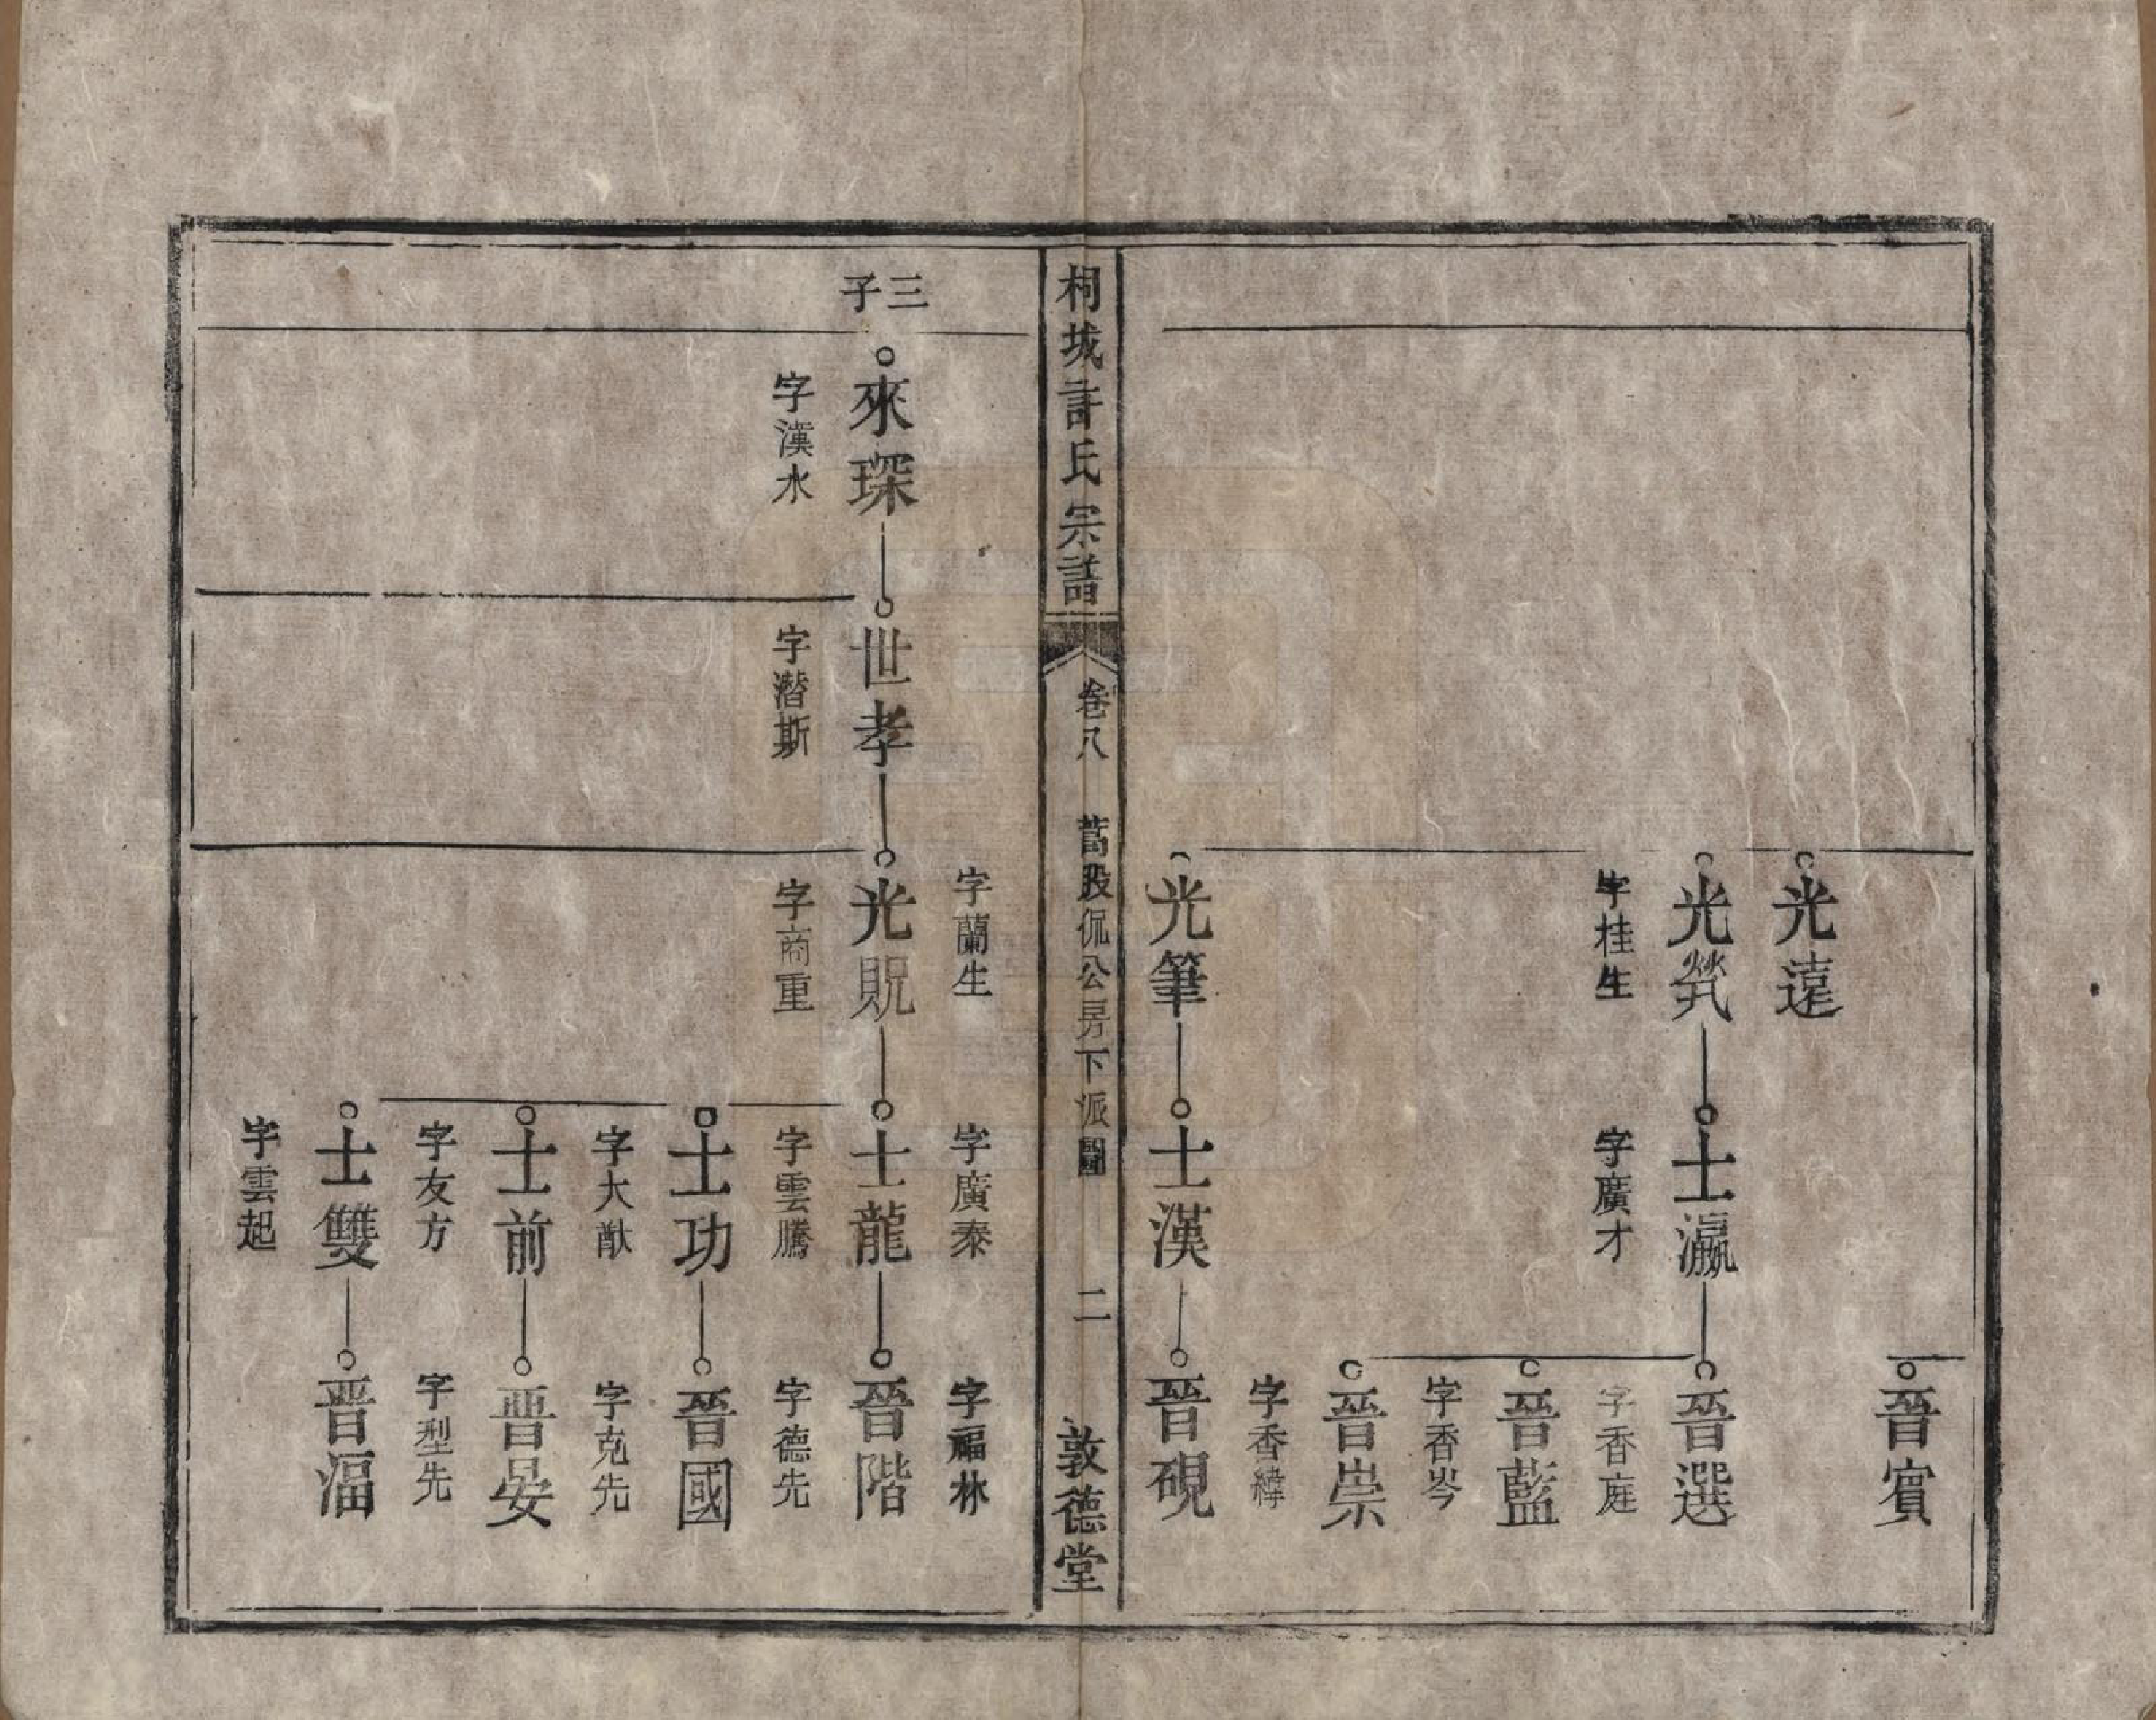 光遠
光煢
字桂生
光筆
字蘭生
士瀛
字廣才
士漢
字廣泰
晉賓
晉選
字香庭
晉藍
字香岑
晉崇
字香緯
晉硯
字福林
桐城許氏宗譜
卷八
萵股侃公房下派圖
二
敦德堂
三子
來琛
字漢水
世孝
字潛斯
光貺
字商重
士龍
字雲騰
士功
字大猷
士前
字友方
士雙
字雲起
晉階
字德先
晉國
字克先
晉晏
字型先
晉湢